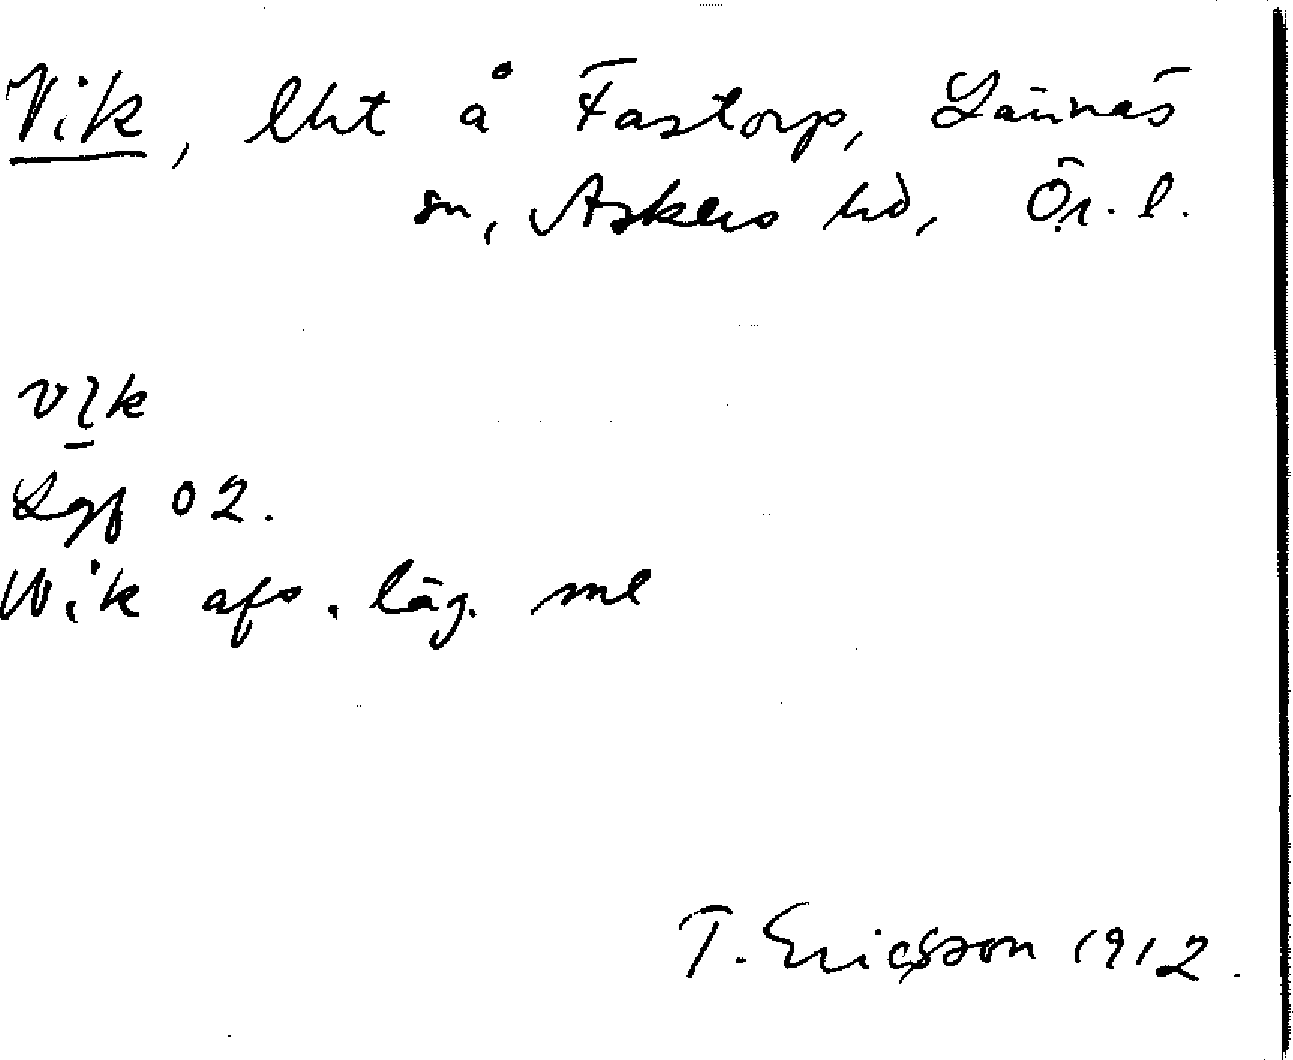 Vik, lht å Fastorp, Lännäs
sn, Askers hd, Ör. l.
vik
Lgf 02.
Wik afs. läg. 
T. Ericsson 1912.